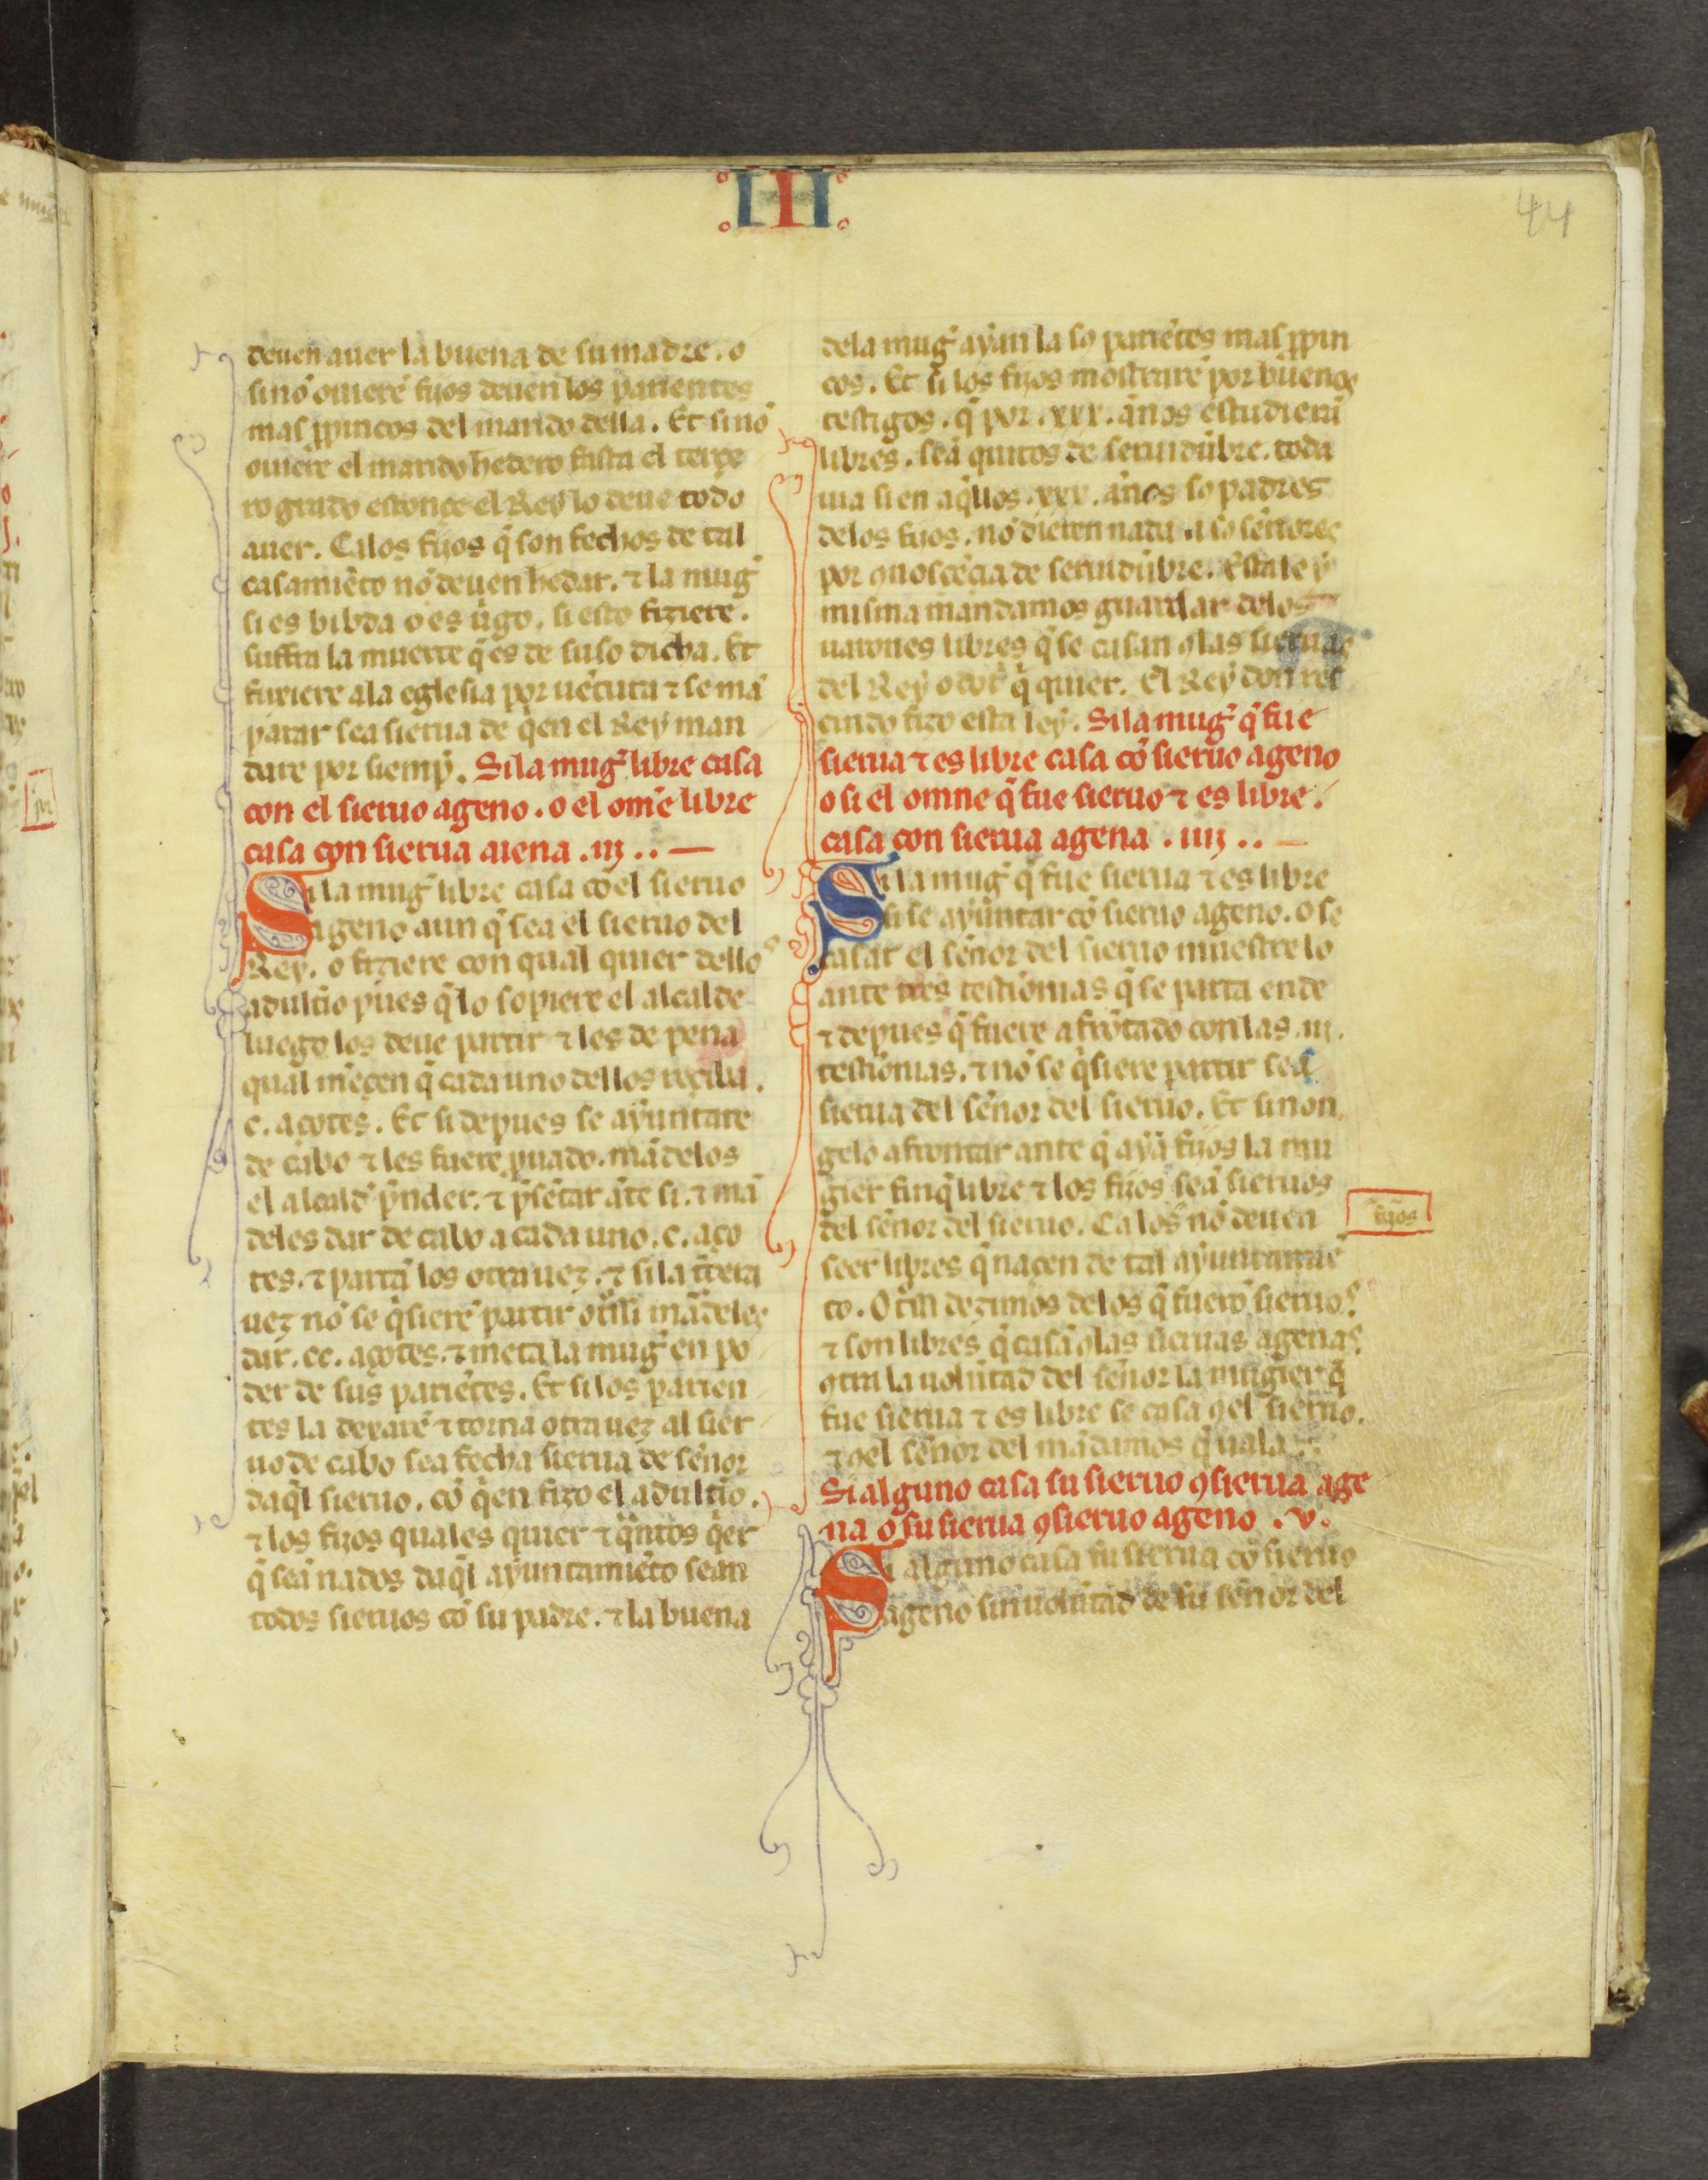 III
44
deuen auer la buena de su madre. o
sinõ ouierẽ fijos deuen los parientes
mas ꝓpincos del marido della. Et sinõ
ouiere el marido hedero fasta el terçe
ro grado estonçe el Rey lo deue todo
auer. Ca los fijos q̃ son fechos de tal
casamiẽto nõ deuen hedar. ⁊ la mug̃
si es bibda o es ũgo. si esto fiziere.
suffra la muerte q̃ es de suso dicha. Et
fuxiere ala eglesia por uẽtura ⁊ se mã
parar sea sierua de q̃en el Rey man
dare por siemp̃. Si la mug̃ libre casa
con el sieruo ageno. o el om̃e libre
casa con sierua aiena .iij..
Si la mug̃ libre casa cõel sieruo
ageno aun q̃ sea el sieruo del
Rey. o fiziere con qual quier dellos
adult̃io pues q̃ lo sopiere el alcalde
luego los deue partir ⁊ les de pena
qual meçen q̃ cada uno dellos reçiba.
c. açotes. Et si depues se ayuntare
de cabo ⁊ les fuere ꝓuado. mãdelos
el alcald̃ p̃nder. ⁊ p̃sẽtar ãte si. ⁊ mã
deles dar de cabo a cada uno. c. aço
tes. ⁊ partã los otra uez. ⁊ si la t̃çera
uez nõ se q̃sierẽ partir ot̃ssi mãdeles
dar. cc. açotes. ⁊ meta la mug̃ en po
der de sus pariẽtes. Et si los parien
tes la dexarẽ ⁊ torna otra uez al sier
uo de cabo sea fecha sierua de señor
daq̃l sieruo. cõ q̃en fizo el adult̃io.
⁊ los fijos quales quier ⁊ q̃ntos q̃er
q̃ seã nados daq̃l ayuntamiẽto sean
todos sieruos cõ su padre. ⁊ la buena
dela mug̃ ayan la so pariẽtes mas ꝓpin
cos. Et si los fijos mostrarẽ por buenos
testigos. q̃ por .xxx. años estudierã
libres. seã quitos de seruidũbre. toda
uia si en aq̃llos .xxx. años so padres
delos fijos. nõ dieren nada a so señores
por ꝯnosçẽçia de seruidũbre. Esta ley
misma mandamos guardar delos
uarones libres q̃ se casan ꝯlas sieruas
del Rey o dot̃ q̃ quier. El Rey don res
cindo fizo esta ley. Si la mug̃ q̃ fue
sierua ⁊ es libre casa cõ sieruo ageno
o si el omne q̃ fue sieruo ⁊ es libre.
casa con sierua agena .iiij..
Si la mug̃ q̃ fue sierua ⁊ es libre
si se ayuntar cõ sieruo ageno. o se
casar el señor del sieruo muestrelo
ante tres testiõnias q̃ se parta ende
⁊ depues q̃ fuere afrõtado con las .iij.
testiõnias. ⁊ nõ se q̃siere partir sea
sierua del señor del sieruo. Et sinon
gelo afrontar ante q̃ ayã fijos la mu
gier finq̃ libre ⁊ los fijos seã sieruos
del señor del sieruo. Ca los nõ deuen
fijos
seer libres q̃ naçen de tal ayuntamiẽ
to. Ot̃ssi dezimos delos q̃ fuerõ sieruos
⁊ son libres q̃ casã ꝯlas sieruas agenas
ꝯtra la uolũtad del señor la mugier q̃
fue sierua ⁊ es libre se casa ꝯel sieruo.
⁊ ꝯel señor del mãdamos q̃ uala
Si alguno casa su sieruo ꝯ sierua age
na o su sierua ꝯ sieruo ageno .v.
Si alguno casa su sierua cõ sieruo
ageno sin uolũtad de su señor del